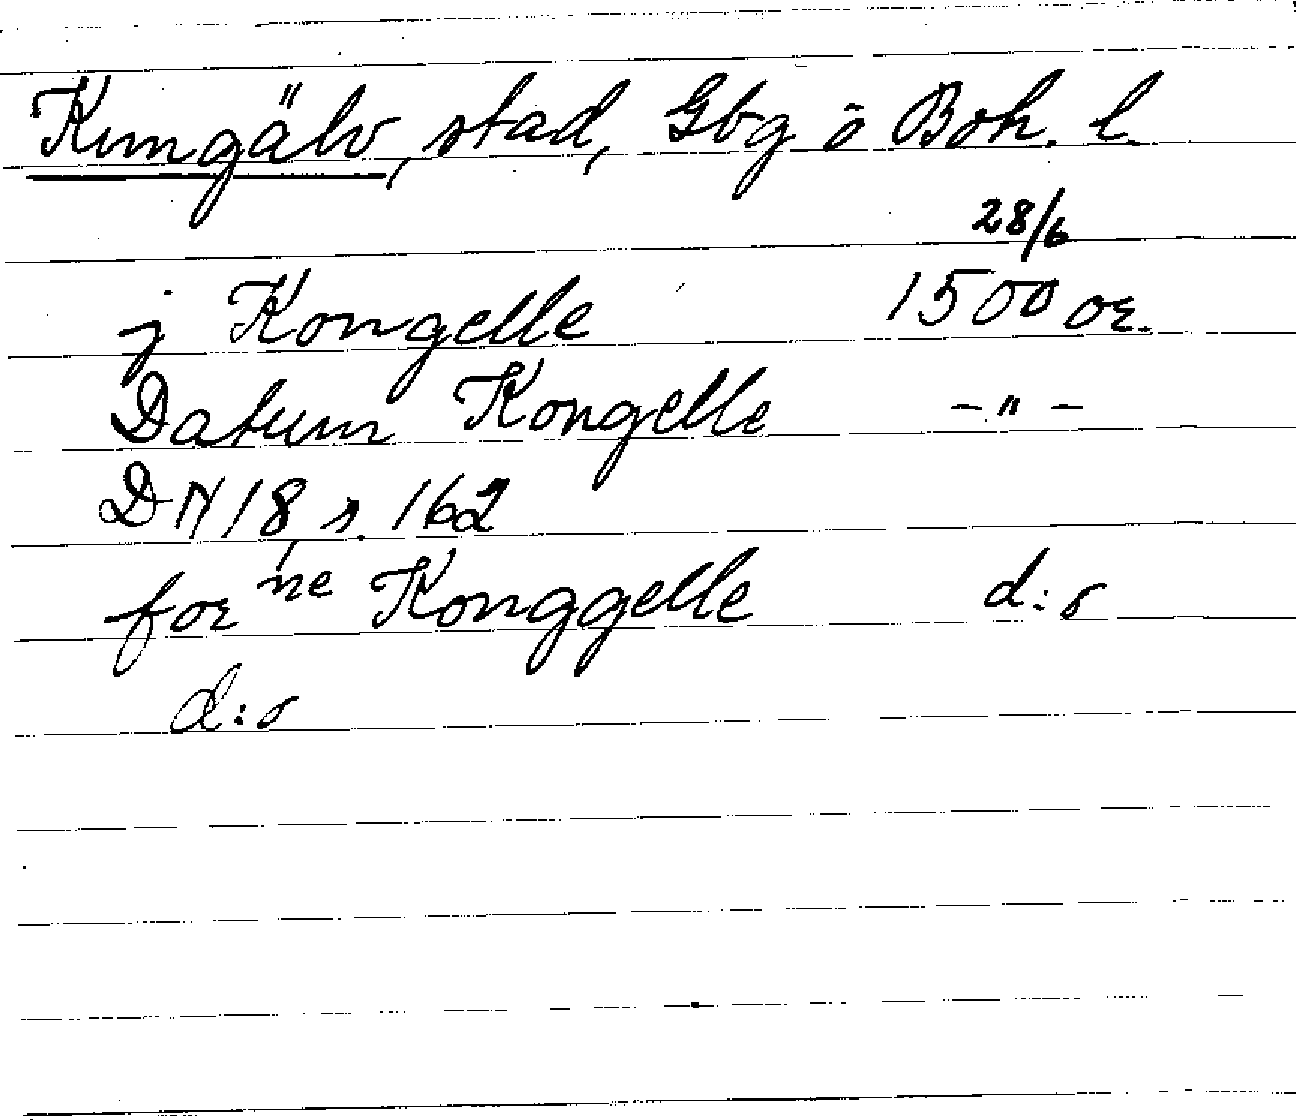 Kungälv, stad, Gbg o Boh. l.
28/6
j Kongelle 1500 or.
Datum Kongelle -"-
DN 18, s. 162
for ne Konggelle d:o
d:o